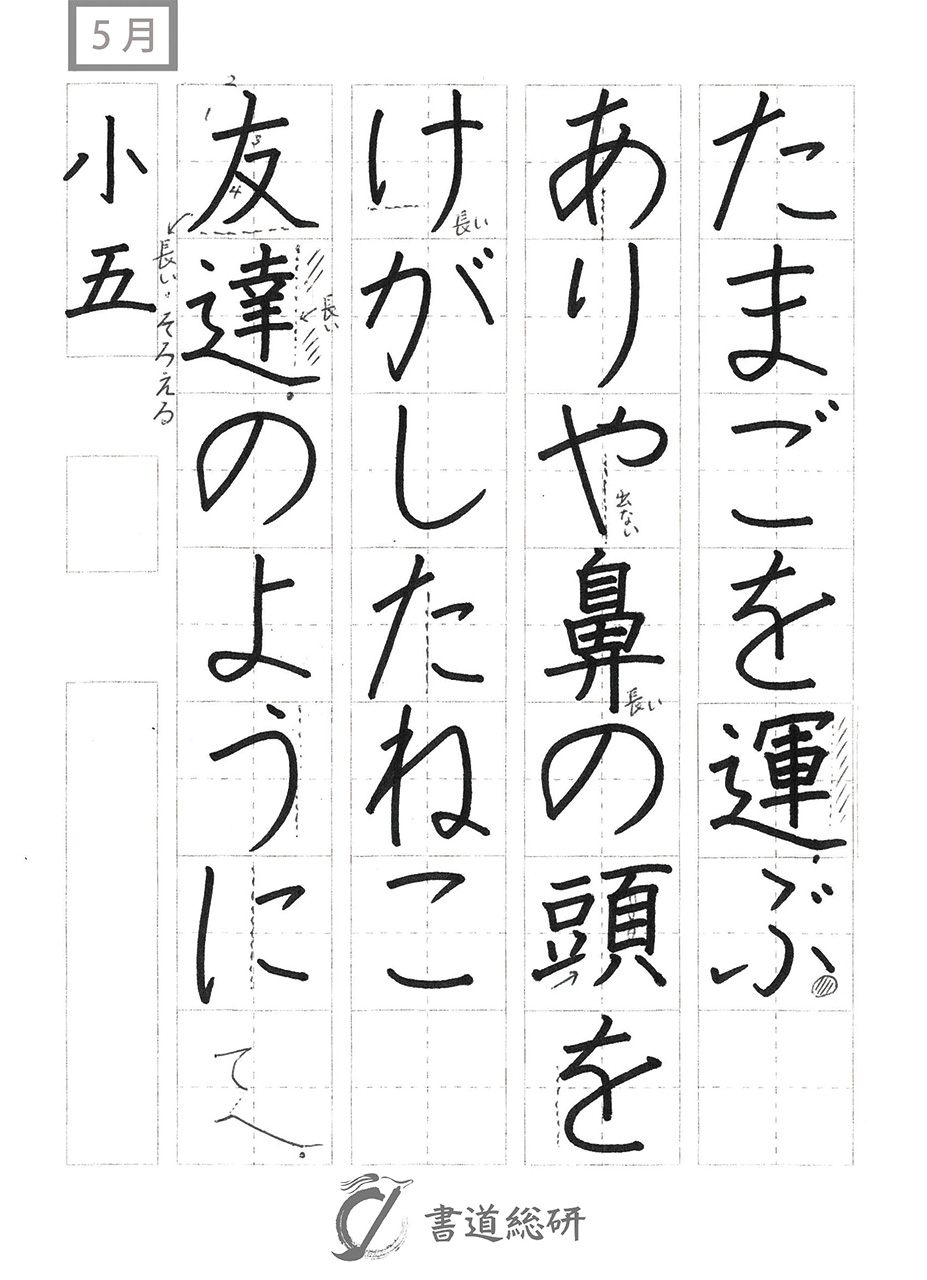 5月
たまごを運ぶ
ありや鼻の頭を
けがしたねこ
友達のように
小五
出ない
長い
長い
1
2
3
4
長い
長い。そろえる
書道総研